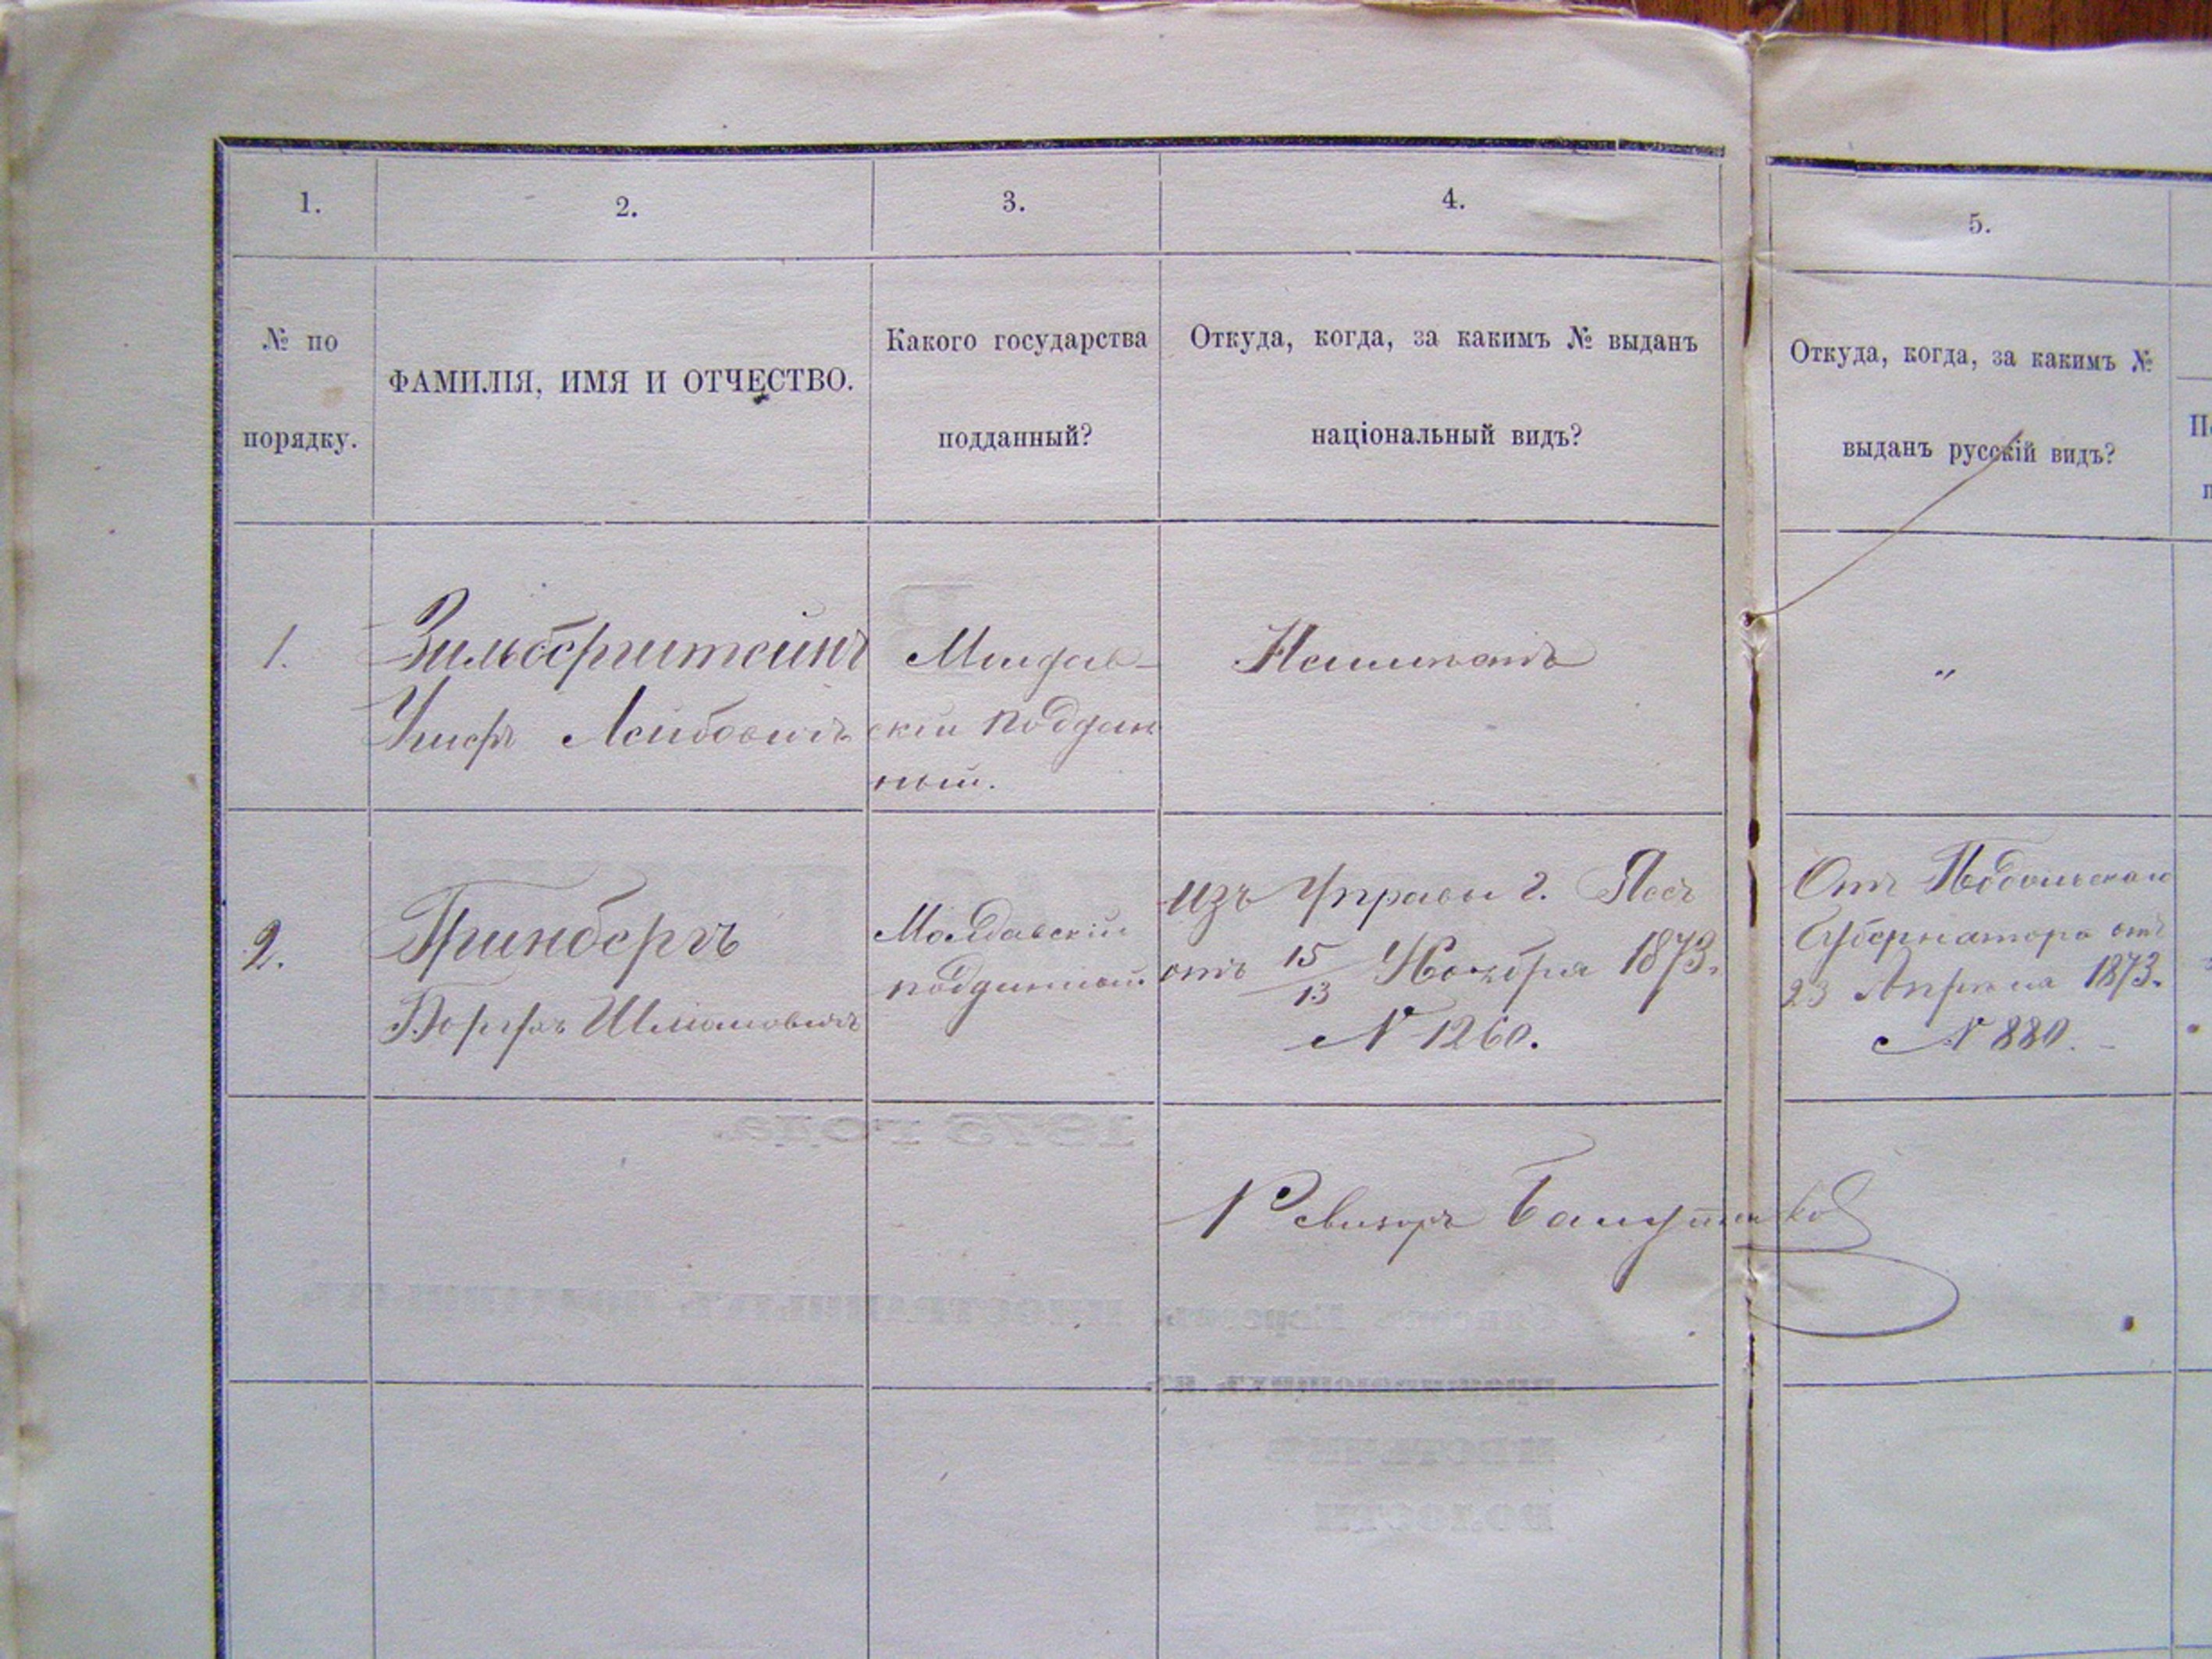 1.
2.
3.
4.
5.
№ по
порядку.
ФАМИЛІЯ, ИМЯ И ОТЧЕСТВО.
Какого государства
подданный?
Откуда, когда, за какимъ № выданъ
національный видъ?
Откуда, когда, за какимъ №
выданъ русскій видъ?
1.
Зильберштейнъ
Лейбовичъ
Молдав-
скій поддан
ный.
"
2.
Гринбергъ
Шмановичъ
Молдавскій
подданный.
изъ Управы г. Яссъ
отъ 15/13 Ноября 1873.
№ 1260.
Отъ Подольскаго
Губернатора отъ
23 Апреля 1873.
№ 880.
Ревизоръ
1875 года.
ВОЛОСТИ